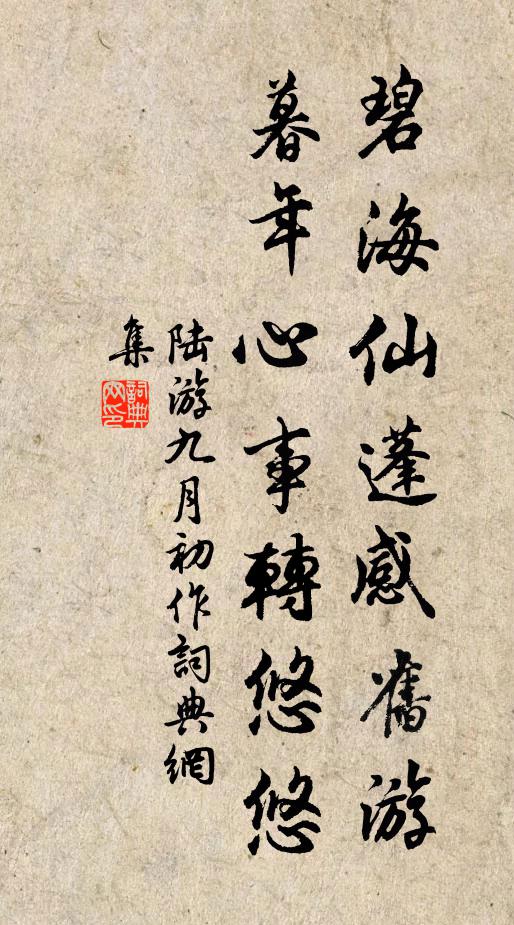 碧海仙蓬感舊游
暮年心事轉悠悠
陸游九月初作詞典網
集
詞典
网印